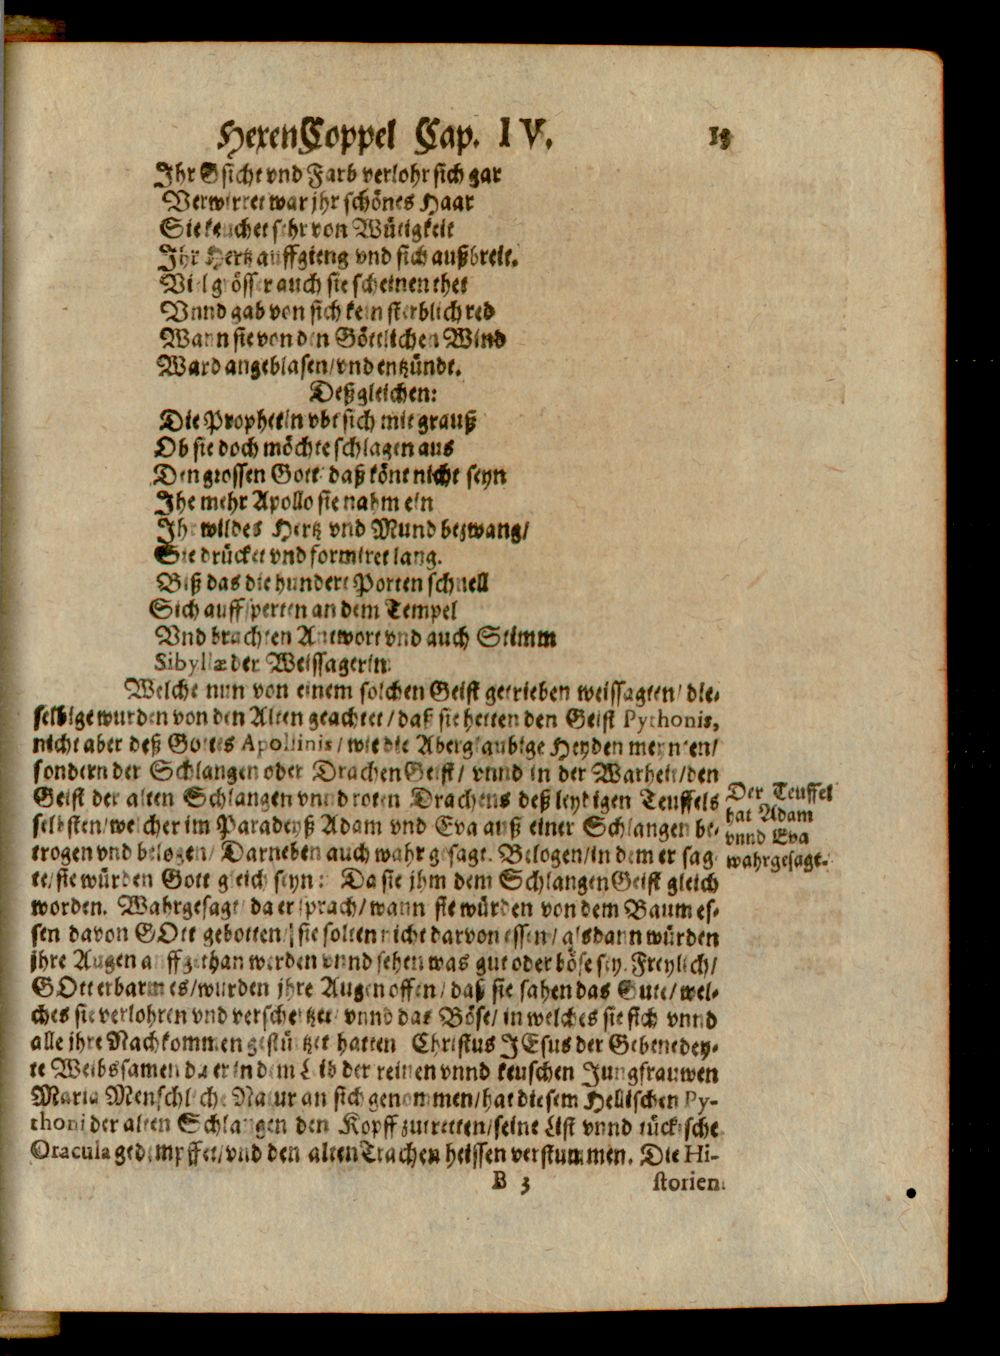 HexenCoppel Cap. IV. 13
Ihr Gsicht vnd Farb verlohr sich gar
Verwirret war jhr schönes Haar
Sie keuchet sehr von Wütigkeit
Ihr Hertz auffgieng vnd sich außbreit.
Viel grösser auch sie scheinen thet
Vnnd gab von sich kein sterblich red
Wann sie von den Göttlichen Wind
Ward angeblasen/vnd entzündt.
Deßgleichen:
Die Prophetin vbt sich mit grauß
Ob sie doch möchte schlagen aus
Den grossen Gott daß könt nicht seyn
Ihe mehr Apollo sie nahm ein
Ihr wildes Hertz vnd Mund bezwang/
Sie drücket vnd formiret lang.
Biß das die hundert Porten schnell
Sich auffsperten an dem Tempel
Vnd brachten Antwort vnd auch Stimm
Sibyllæ der Weissagerin.
Welche nun von einem solchen Geist getrieben weissagten/die-
selbige wurden von den Alten geachtet/daß sie hetten den Geist Pythonis,
nicht aber deß Gottes Apollinis/wie die Aberglaubige Heyden meynten/
sondern der Schlangen oder Drachen Geist/ vnnd in der Warheit/den
Geist der alten Schlangen vnnd roten Drachens deß leydigen Teuffels
selbsten/welcher im Paradeyß Adam vnd Eva auß einer Schlangen be-
trogen vnd belogen/ Darneben auch wahrgesagt. Belogen/in dem er sag-
te/sie würden Gott gleich seyn: Da sie jhm dem SchlangenGeist gleich
worden. Wahrgesagt da er sprach/wann sie würden von dem Baum es-
sen davon GOtt gebotten/ sie solten nicht darvon essen/alsdann würden
jhre Augen auffgethan werden vnnd sehen was gut oder böse sey. Freylich/
GOtt erbarm es/wurden jhre Augen offen/ daß sie sahen das Gute/wel-
ches sie verlohren vnd verschertzet/ vnnd das Böse/in welches sie sich vnnd
alle ihre Nachkommen gestürtzet hatten Christus JEsus der Gebenedey-
te Weibssamen da er in dem Leib der reinen vnnd keuschen Jungfrauwen
Maria Menschliche Natur an sich genommen/hat diesem Hellischen Py-
thoni der alten Schlangen den Kopff zutretten/seine List vnnd tückische
Oracula gedempffet/vnd den alten Trachen heissen verstummen. Die Hi-
B 3 storien.
Der Teuffel
hat Adam
vnnd Eva
wahrgesagt.